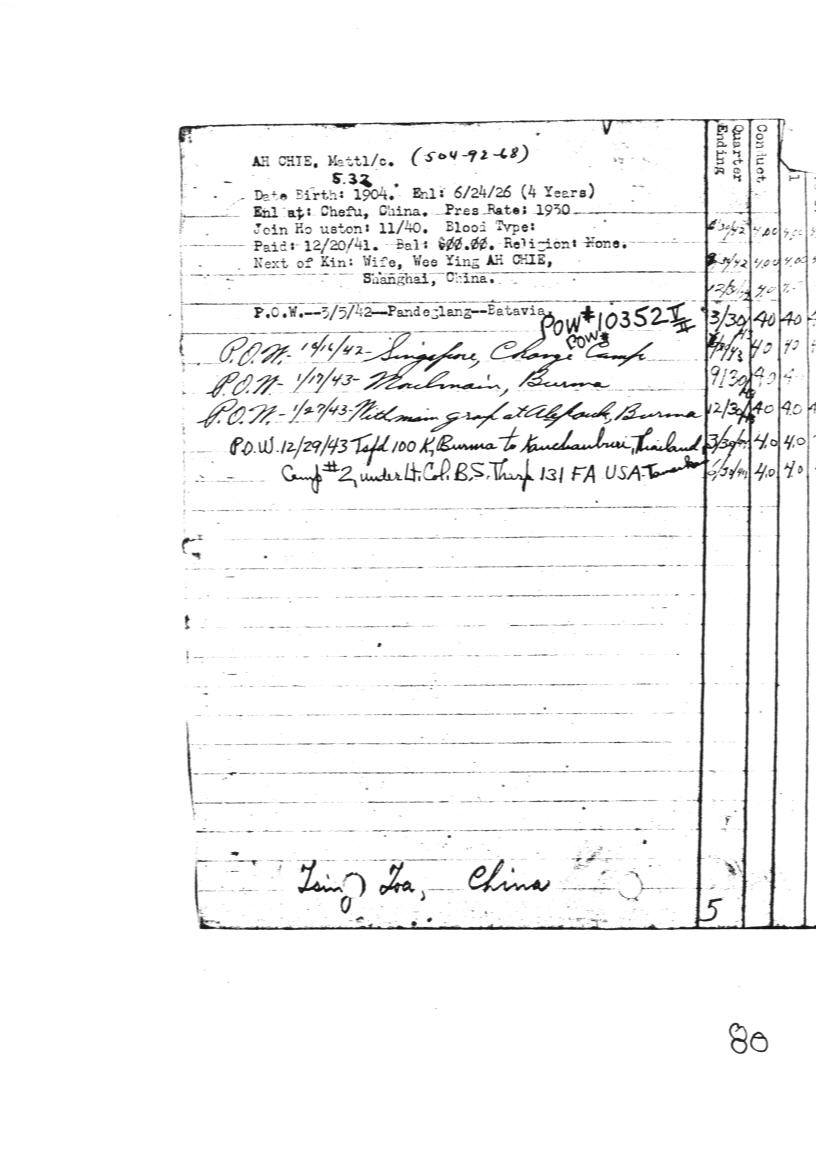 AH CHIE, Mattl/c. (504-92-68)
5.32
Date Birth: 1904. Enl: 6/24/26 (4 Years)
Enl at: Chefu, China. Pres Rate: 1930
Join Houston: 11/40. Blood Type:
Paid: 12/20/41. Bal: $00.00. Religion: None.
Next of Kin: Wife, Wee Ying AH CHIE,
Shanghai, China.
P.O.W.--3/5/42--Pandeglang--Batavia
POW#10352 V II
POW#
P.O.W.- Singapore, Change Camp
P.O.W.- 1/17/43- Moulmain, Burma
P.O.W.- 1/27/43- With main group at Burma
P.O.W. 12/29/43 Tsfd 100 K, Burma to Kanchanburi, Thailand,
Camp #2, under Lt. Col. B.S. Tharp 131 FA USA-
Tsing Toa, China
Quarter Ending
Conduct
6/30/42 4.00 4.00
9/30/42 4.00 4.00
12/31/42 4.0
3/30/43 4.0 4.0
4.0 4.0
9/30/43 4.0 4
12/30/43 4.0 4.0
3/30/44 4.0 4.0
6/30/44 4.0 4.0
5
80